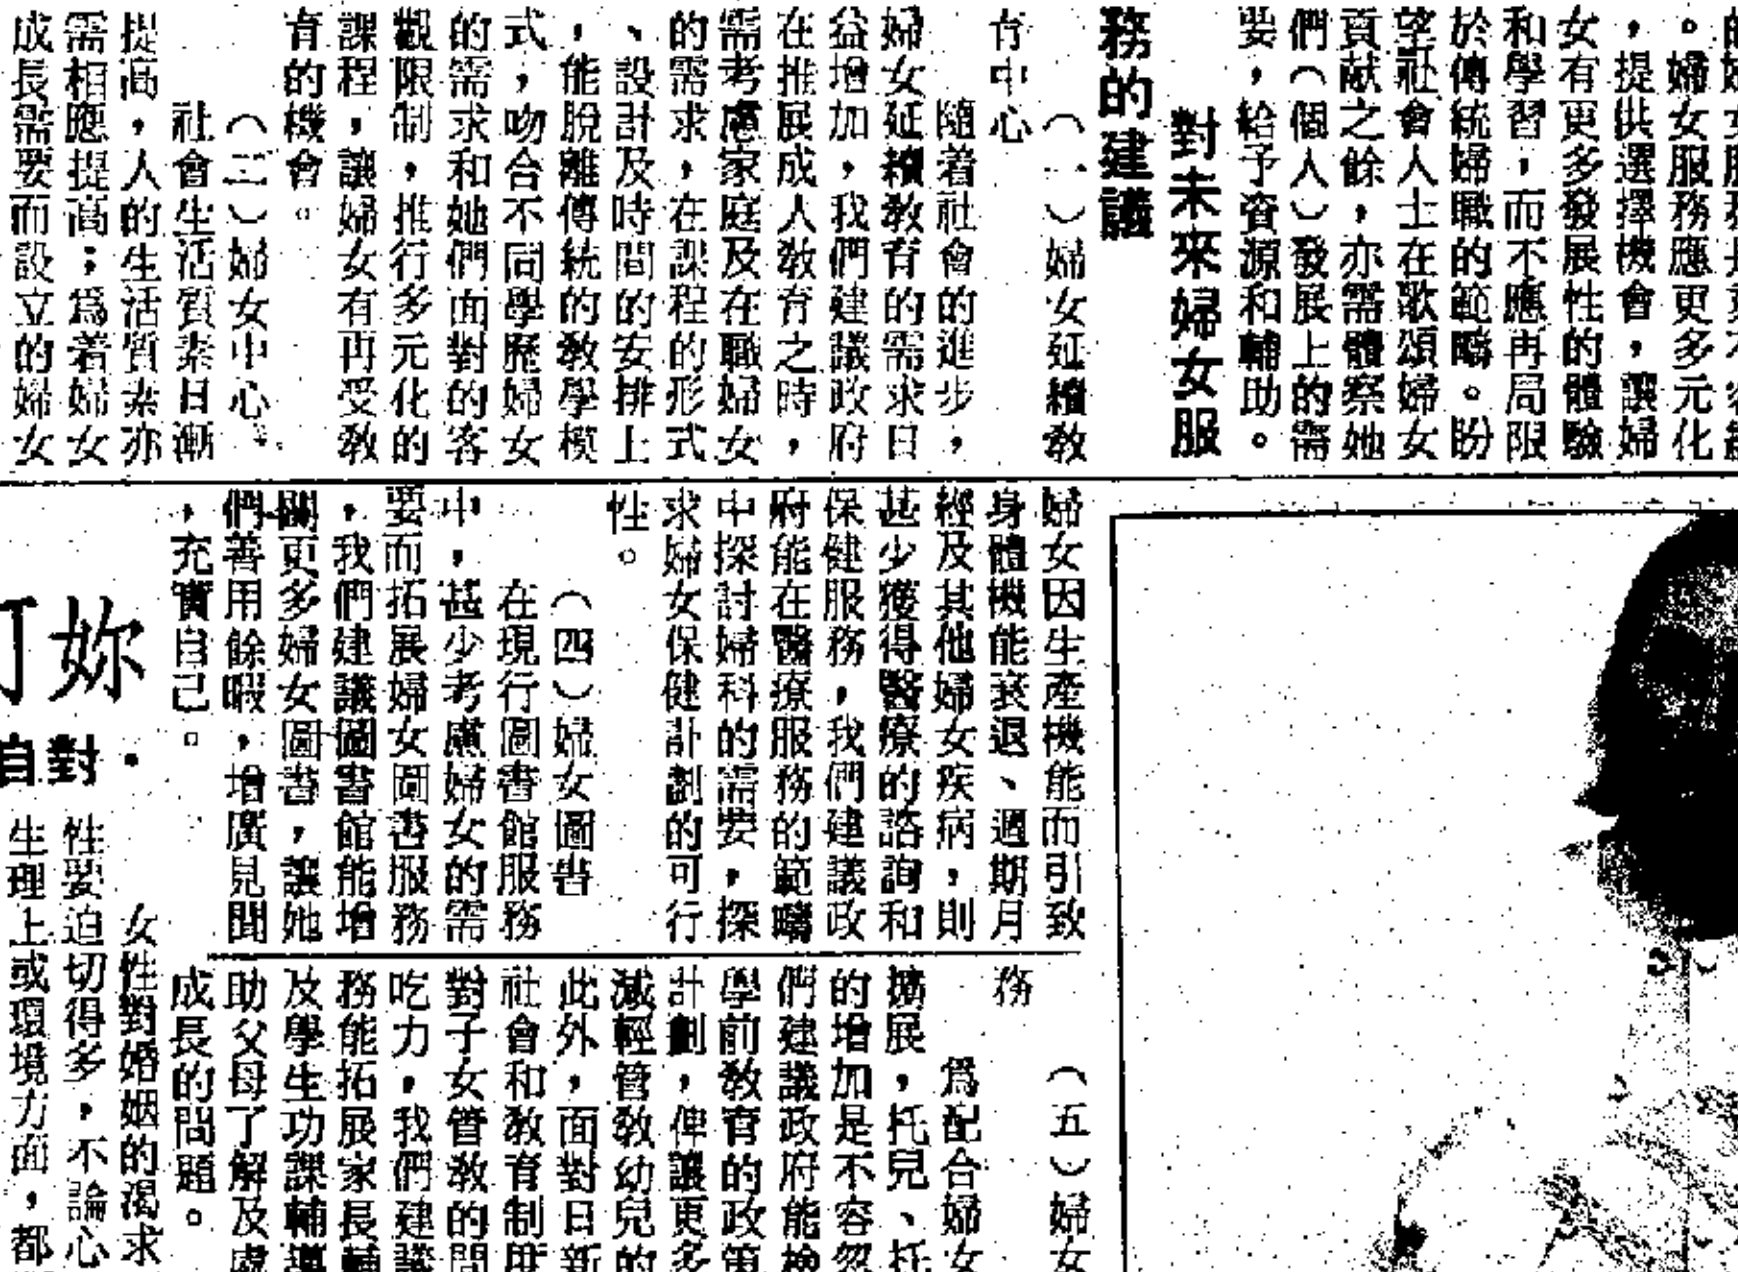 。婦女服務應更多元化
，提供選擇機會，讓婦
女有更多發展性的體驗
和學習，而不應再局限
於傳統婦職的範疇。盼
望社會人士在歌頌婦女
貢献之餘，亦需體察她
們（個人）發展上的需
要，給予資源和輔助。
對未來婦女服
務的建議
（一）婦女延續敎
育中心
隨着社會的進步，
婦女延續敎育的需求日
益增加，我們建議政府
在推展成人敎育之時，
需考慮家庭及在職婦女
的需求，在課程的形式
、設計及時間的安排上
，能脫離傳統的敎學模
式，吻合不同學歷婦女
的需求和她們面對的客
觀限制，推行多元化的
課程，讓婦女有再受敎
育的機會。
（二）婦女中心
社會生活質素日漸
提高，人的生活質素亦
需相應提高；爲着婦女
成長需要而設立的婦女
婦女因生產機能而引致
身體機能衰退、週期月
經及其他婦女疾病，則
甚少獲得醫療的諮詢和
保健服務，我們建議政
府能在醫療服務的範疇
中探討婦科的需要，探
求婦女保健計劃的可行
性。
（四）婦女圖書
在現行圖書館服務
中，甚少考慮婦女的需
要而拓展婦女圖書服務
，我們建議圖書館能增
關更多婦女圖書，讓她
們善用餘暇，增廣見聞
，充實自己。
（五）婦女
務
爲配合婦女
擴展，托兒、托
的增加是不容忽
們建議政府能檢
學前敎育的政策
計劃，俾讓更多
減輕管敎幼兒的
此外，面對日新
社會和敎育制度
對子女管敎的問
吃力，我們建議
務能拓展家長輔
及學生功課輔導
助父母了解及處
成長的問題。
妳
．對自
女性對婚姻的渴求
性要迫切得多，不論心
生理上或環境方面，都